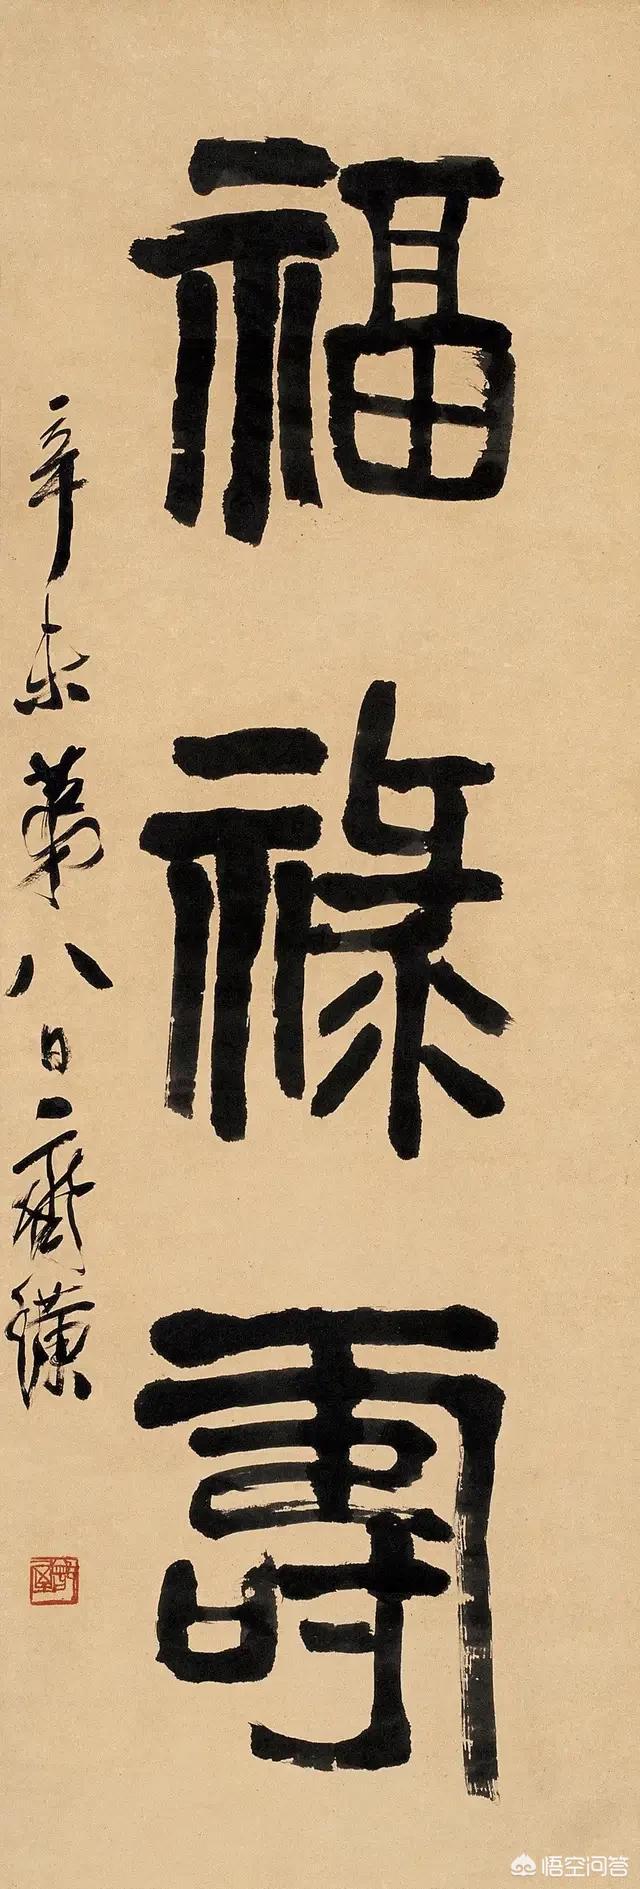 福禄寿
辛未第八日齐璜
悟空问答